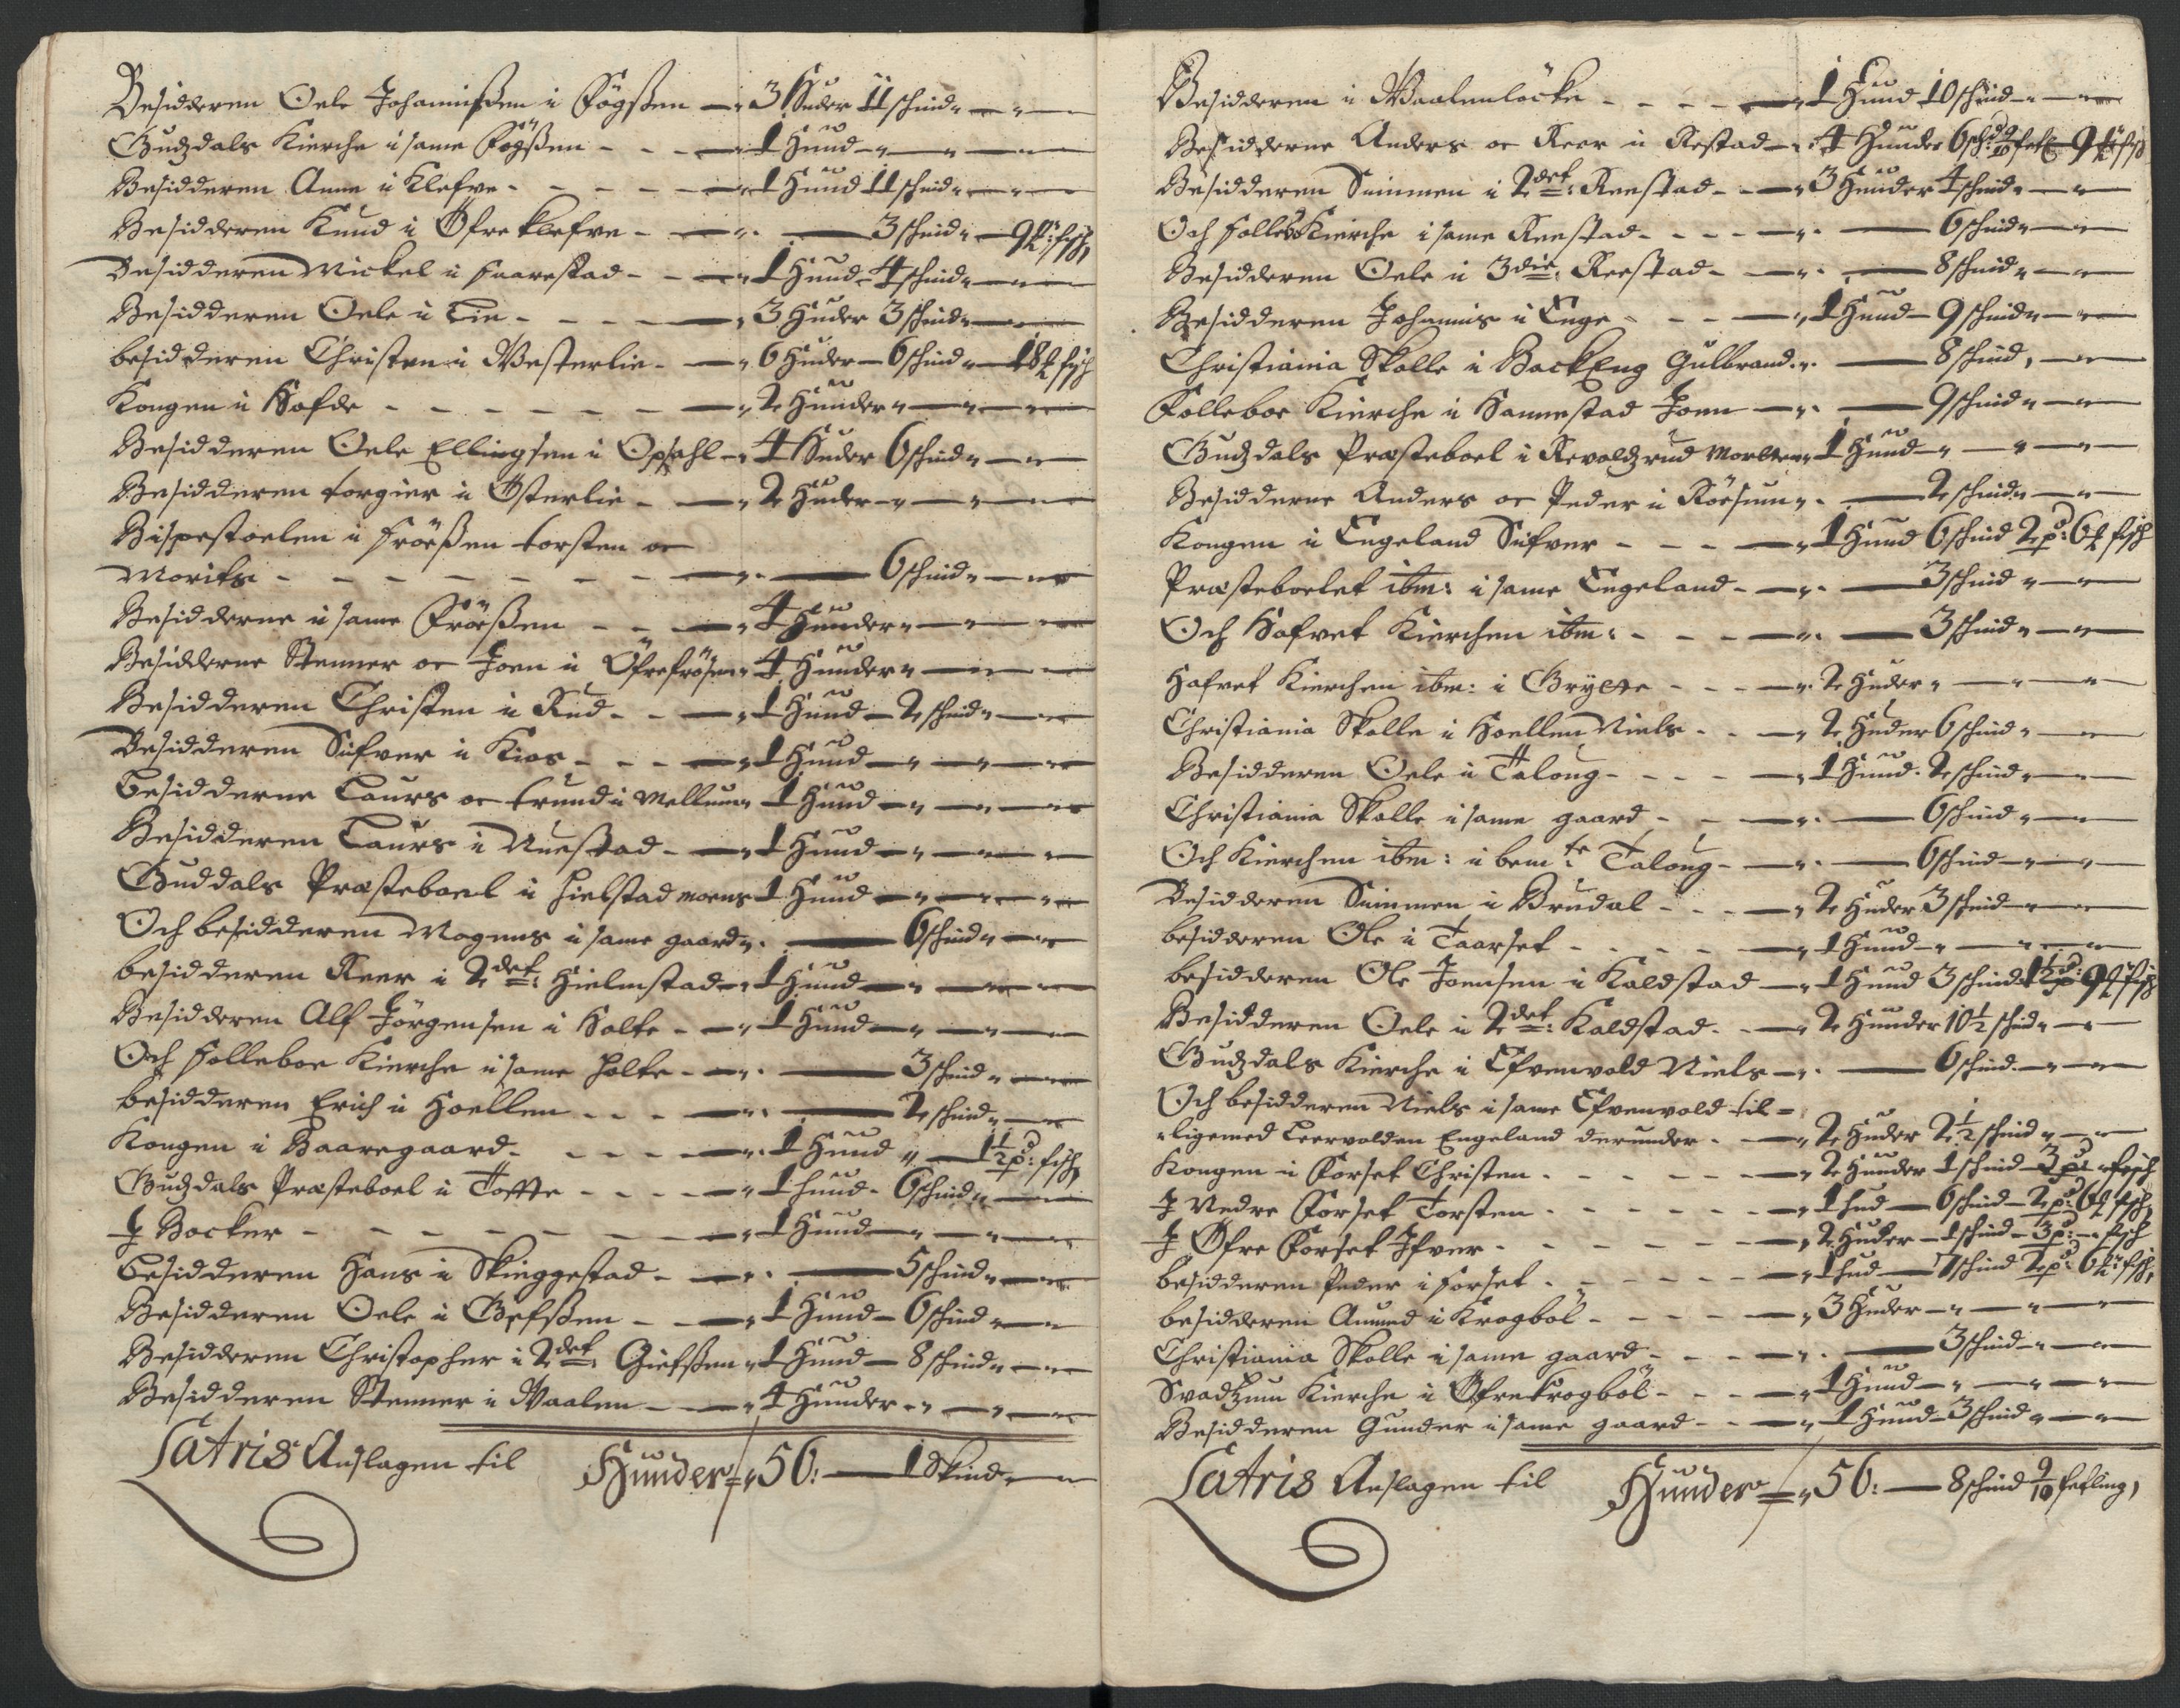 Besidderen Oele Johanneßen i Föyßen — 3 Huder 11 schind
Gudzdals Kierche i same Föyßen — 1 Huud
Besidderen Anne i Klefve — 1 Huud 11 schind
Besidderen Knud i Øfre Klefve — 3 schind — 9 fisch
Besidderen Mickel i Haarestad — 1 Huud 4 schind
Besidderen Oele i Lie — 3 Huder 3 schind
besidderen Christen i Westerlie — 6 Huder 6 schind — 18 fisch
Kongen i Hofde — 2 Huuder
Besidderen Oele Ellingsen i Opsahl — 4 Huder 6 schind
Besidderen Torgier i Østerlie — 2 Huder
Bispestoelen i Fröeßen Torsten oc
Morits — 6 schind
Besidderne i same Fröeßen — 4 Huuder
Besidderne Stenner oc Joen i Öfrefrösen 4 Huuder
Besidderen Christen i Rud — 1 Huud 2 schind
Besidderen Sifver i Kios — 1 Huud
Besidderne Laurs oc Trund i Mellum 1 Huud
Besidderen Laurs i Nuestad — 1 Huud
Guddals Præsteboel i Hielstad Moens 1 Huud
Och besidderen Mogens i same gaard — 6 schind
besidderen Reer i 2det: Hielmstad — 1 Huud
Besidderen Alf Jörgensen i Holte — 1 Huud
Och Folleboe Kierche i same Holte — 3 schind
besidderen Erich i Hoellen — 2 schind
Kongen i Baaregaard — 1 Huud — 1½ pd: fisch
Gudzdals Præsteboel i Toffte — 1 huud 6 schind
I Bocker — 1 Huud
Besidderen Hans i Skieggestad — 5 schind
Besidderen Oele i Gefßen — 1 Huud 6 schind
Besidderen Christopher i 2det: Giefßen 1 Huud 8 schind
Besidderen Stenner i Waalen — 4 Huuder
Latris Anslagen til Huuder 56: — 1 Skind
Besidderen i Waalenlöcke — 1 Huud 10 schind
Besidderne Anders oc Reer i Restad — 4 Huuder 6 sch: 9/10 fetl 9 fisch
Besidderen Simmen i 2det: Reestad — 3 Huuder 4 schind
Och Follebo Kierche i same Reestad — 6 schind
Besidderen Oele i 3die: Reestad — 8 schind
Besidderen Johannis i Enge — 1 Huud 9 schind
Christiania Skolle i BackEng Gulbrand — 8 schind
Folleboe Kierche i Hannestad Joen — 9 schind
Gudzdals Præsteboel i Revoldzrud Morten 1 Huud
Besidderne Anders oc Peder i Röesum — 2 schind
Kongen i Engeland Sifver — 1 Huud 6 schind 2 pd: 6 fisch
Præsteboelet ibm: i same Engeland — 3 schind
Och Hofvet Kierchen ibm: — 3 schind
Hofvet Kierchen ibm: i Brytte — 2 Huder
Christiania Skolle i Hoellen Niels — 2 Huder 6 schind
Besidderen Oele i Taloug — 1 Huud 2 schind
Christiania Skolle i same gaard — 6 schind
Och Kierchen ibm: i bemte: Taloug — 6 schind
Besidderen Simmen i Brudal — 2 Huder 3 schind
besidderen Ole i Taarset — 1 Huud
besidderen Ole Joensen i Kaldstad — 1 Huud 3 schind 1½ pd 9 fisch
Besidderen Oele i 2det: Kaldstad — 2 Huuder 10½ schind
Gudzdals Kierche i Efvenvold Niels — 6 schind
Och besidderen Niels i same Efvenvold til=
ligemed Leervolden Engeland derunder — 2 Huder 2½ schind
Kongen i Forset Christen — 2 Huuder 1 schind 3 pd fisch
I Nedre Forset Torsten — 1 Hud 6 schind 2 pd: 6 fisch
I Øfre Forset Ifver — 2 Huder 1 schind 3 pd: fisch
besidderen Peder i Forset — 1 Hud 7 schind 2 pd 6 fisch
besidderen Amund i Krogböl — 3 Huder
Christiania Skolle i same gaard — 3 schind
Svadzum Kierche i Øfrekrogböl — 1 Huud
Besidderen Gunder i same gaard — 1 Huud 3 schind
Latris Anslagen til Huuder 56: — 8 schind 9/10 fetling